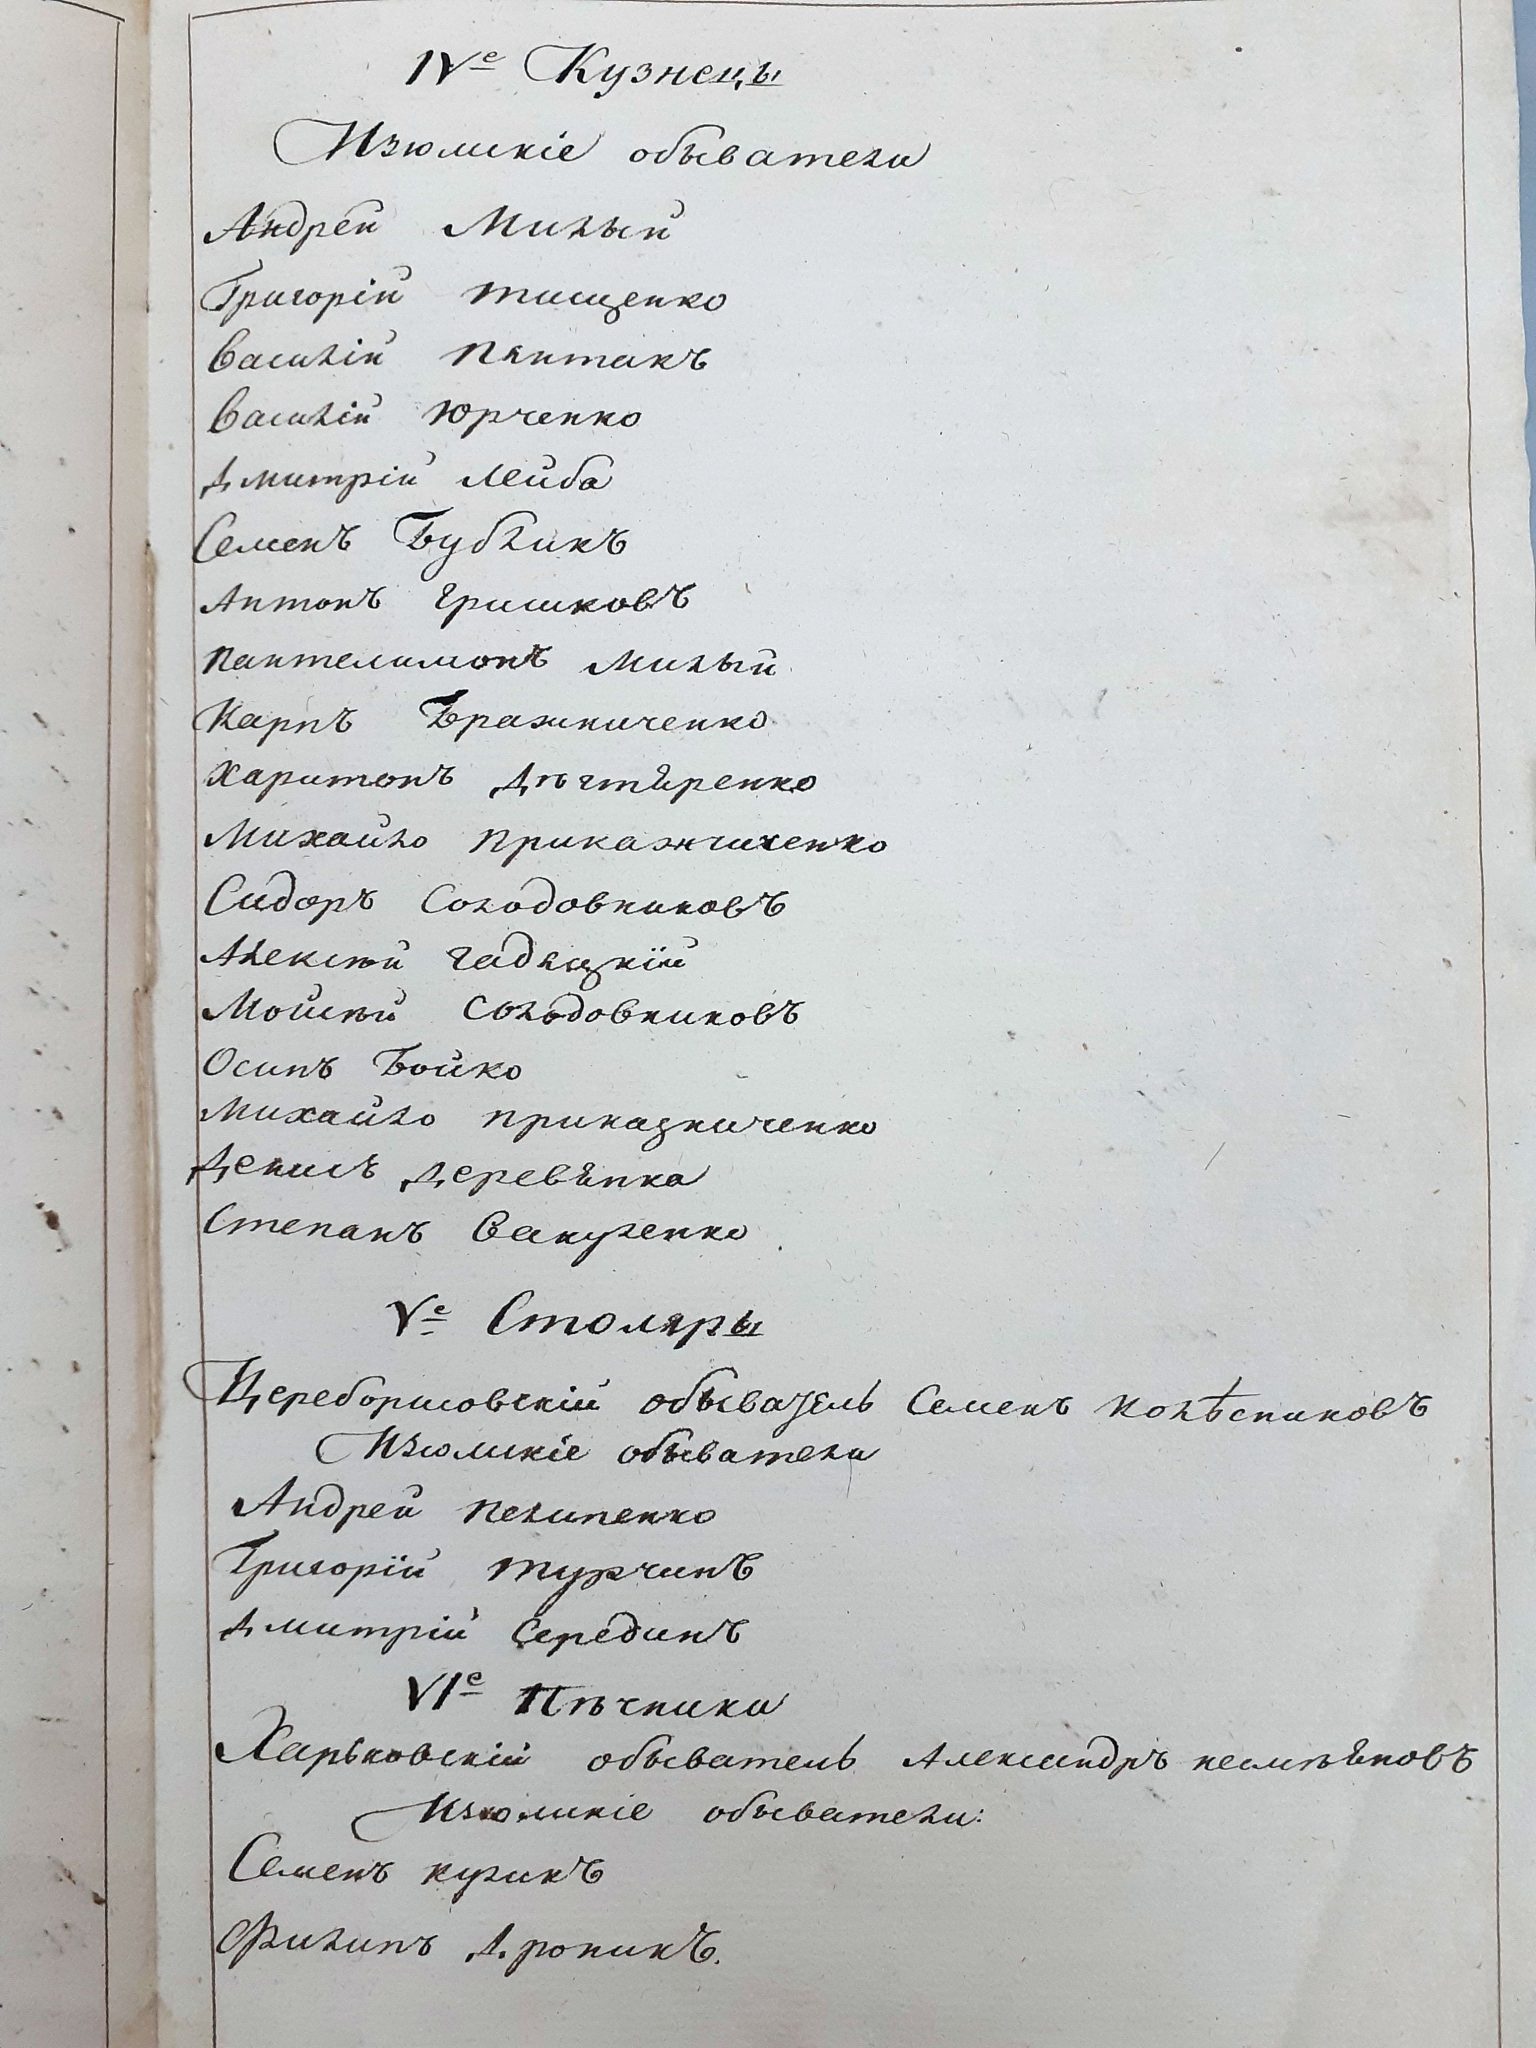 IVе Кузнецы
Изюмскіе обыватели
Андрей Милый
Григорій Тищенко
Василій Пянтакъ
Василій Юрченко
Дмитрій Лейба
Семенъ Бубликъ
Антонъ Гришковъ
Пантелимонъ Милый
Карпъ Бражниченко
Харитонъ Дѣгтяренко
Михайло Прикажчиченко
Сидоръ Солодовниковъ
Алексѣй Гадяцкій
Мойсѣй Солодовниковъ
Осипъ Бойко
Михайло Приказниченко
Денисъ Деревянка
Степанъ Вакуленко
Vе Столяры
Цареборисовскій обыватель Семенъ Колѣсниковъ
Изюмскіе обыватели
Андрей Пелипенко
Григорїй Турчинъ
Дмитрій Серединъ
VIе Пѣчники
Харьковскій обыватель Александръ
Изюмскіе обыватели:
Семенъ Куликъ
Филипъ Дроникъ.